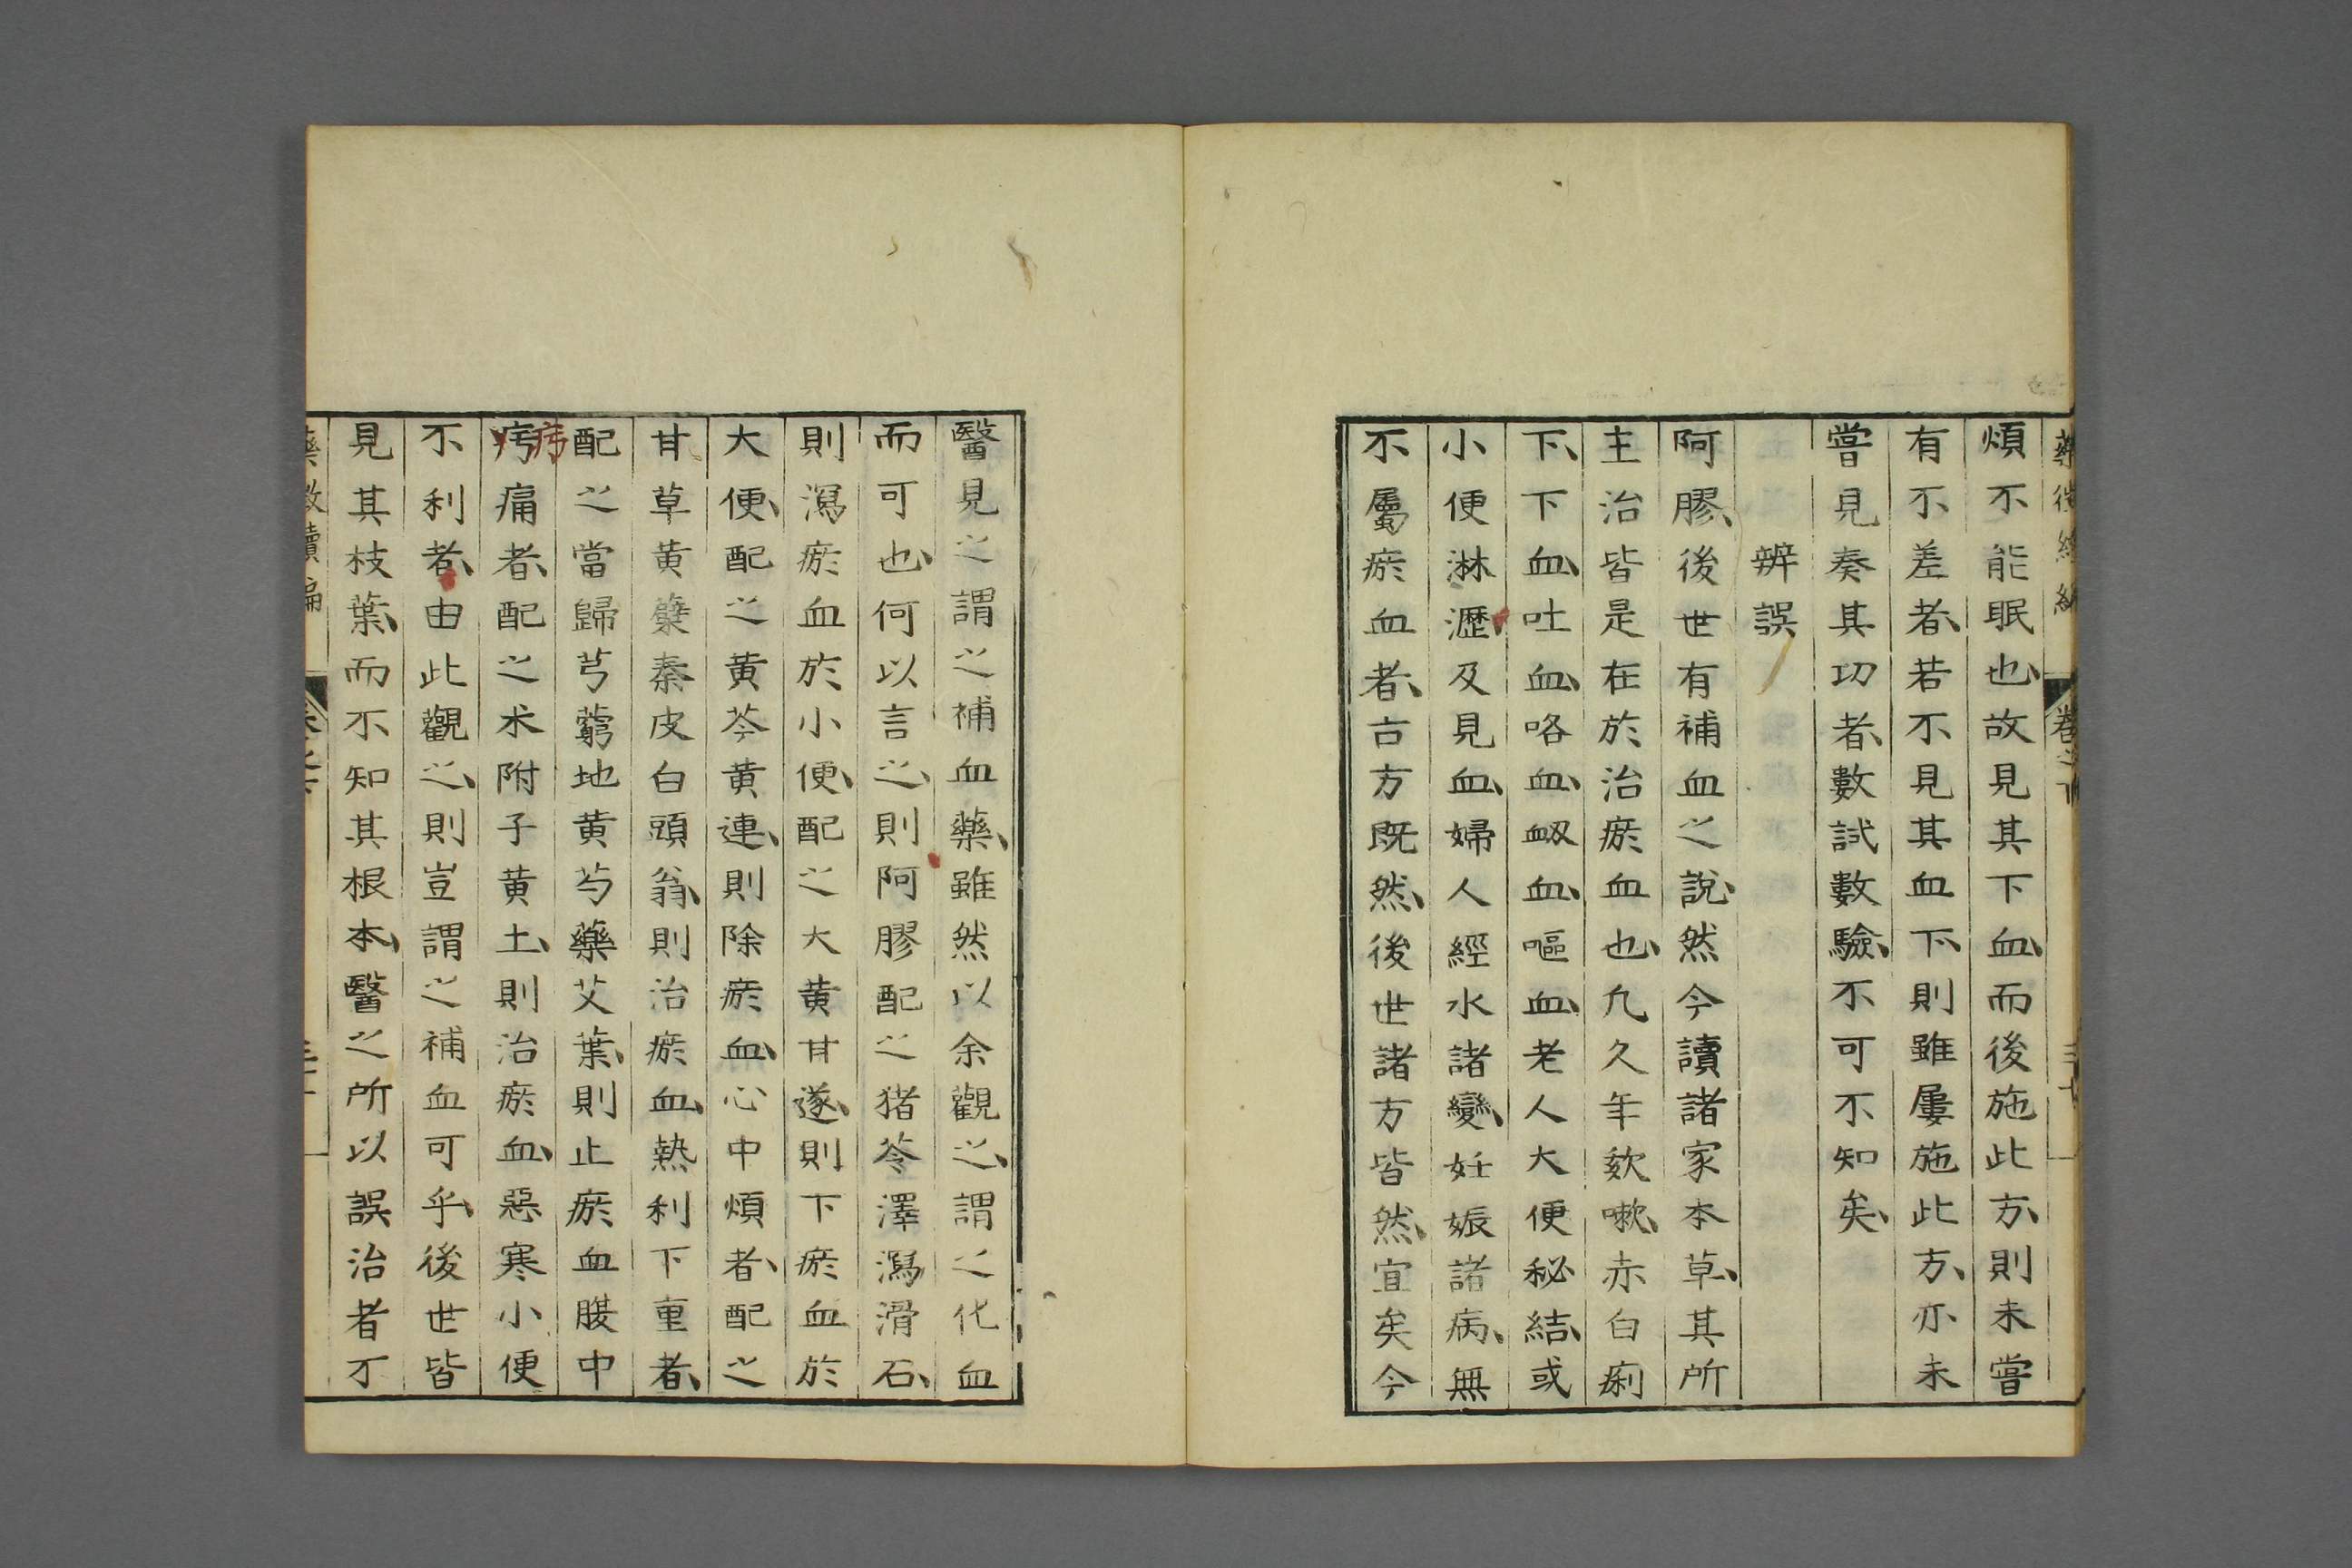 煩不能眠也、故見其下血、而後施此方、則未嘗
有不差者、若不見其血下、則雖屢施此方、亦未
嘗見奏其功者、數試數驗、不可不知矣、
辨誤
阿膠、後世有補血之說、然今讀諸家本草、其所
主治皆是在於治瘀血也、凢久年欬嗽、赤白痢
下、下血、吐血、咯血、衂血、嘔血、老人大便秘結、或
小便淋瀝及見血、婦人經水諸變、妊娠諸病、無
不屬瘀血者、古方既然、後世諸方皆然、宜矣今
醫見之謂之補血藥、雖然以余觀之、謂之化血
而可也、何以言之、則阿膠配之猪苓澤瀉滑石、
則瀉瘀血於小便、配之大黄甘遂、則下瘀血於
大便、配之黄芩黄連、則除瘀血、心中煩者、配之
甘草黄蘗秦皮白頭翁、則治瘀血、熱利下重者、
配之當歸芎藭地黄芍藥艾葉、則止瘀血腹中
㽲痛者、配之朮附子黄土、則治瘀血、惡寒小便
不利者、由此觀之、則豈謂之補血可乎、後世皆
見其枝葉、而不知其根本、醫之所以誤治者不